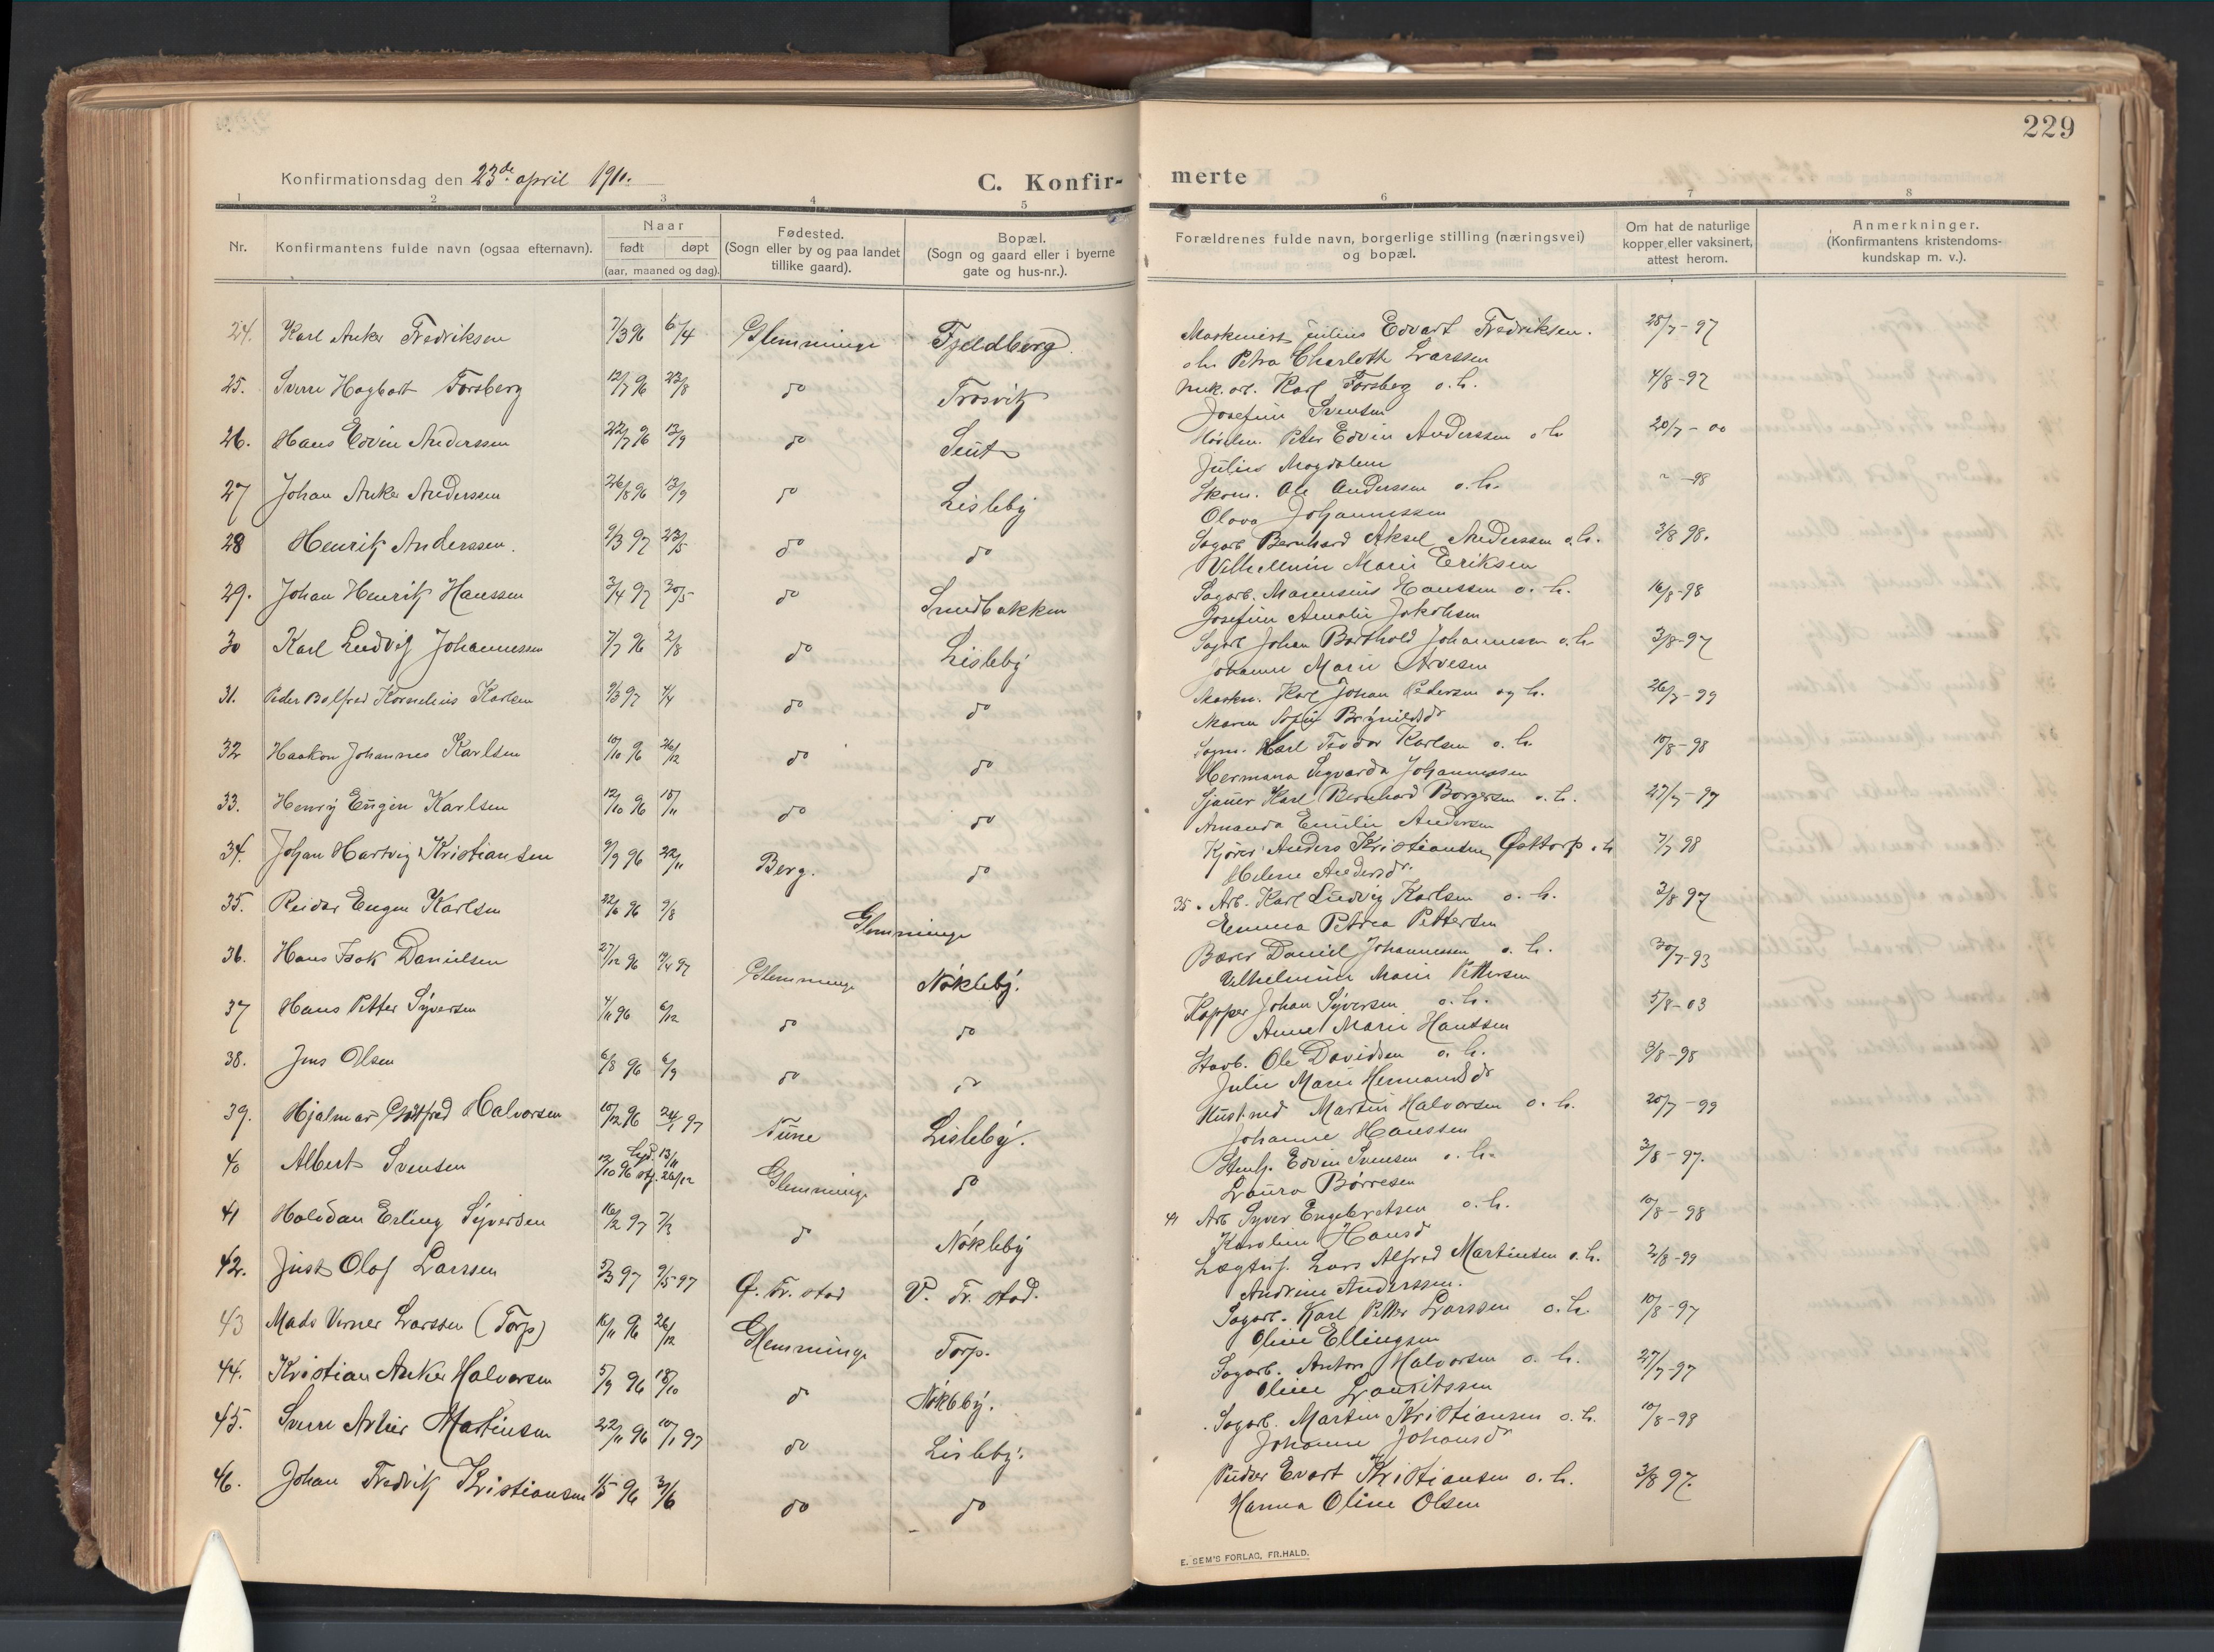 229
Konfirmationsdag den 23de april 1911.
C. Konfir-
merte
1 2 3 4 5 6 7 8
Nr.
Konfirmantens fulde navn (ogsaa efternavn).
Naar
født døpt
(aar, maaned og dag).
Fødested.
(Sogn eller by og paa landet
tillike gaard).
Bopæl.
(Sogn og gaard eller i byerne
gate og hus-nr.).
Forældrenes fulde navn, borgerlige stilling (næringsvei)
og bopæl.
Om hat de naturlige
kopper eller vaksinert,
attest herom.
Anmerkninger.
(Konfirmantens kristendoms-
kundskap m. v.).
24. Karl Anker Fredriksen 7/3 96 6/4 Glemminge Fjeldberg. Maskinist Julius Edvart Fredriksen. 28/7-97
o h Petra Charlotte Larssen
25. Sverre Hagbart Forsberg 12/7 96 23/8 do Trosvik Karl Forsberg o. h. 4/8-97
Josefine Svensen
26. Hans Edvin Anderssen 22/7 96 13/9 do Seut Peter Edvin Anderssen o h 20/7-00
Julius Magdalene
27 Johan Anker Anderssen 26/8 96 13/9 do Lisleby Skom. Ole Anderssen o. h. -98
Olava Johannessen
28 Henrik Anderssen. 9/3 97 23/5 do do Sagarb Bernhard Aksel Anderssen o. h. 3/8 98.
Vilhelmine Marie Eriksen
29. Johan Henrik Hanssen 3/4 97 30/5 do Smedbakken Sagarb. Marensius Hanssen o. h. 16/8-98
Josefine Amalie Jakobsen
30 Karl Ludvig Johannessen 7/7 96 2/8 do Lisleby Sagarb Johan Barthold Johannessen o. h. 3/8-97
Johanne Marie Arvesen
31. Peder Balfred Kornelius Karlsen 9/3 97 4/4 do do Maskn. Karl Johan Pedersen og h. 26/7-99
Maren Sofie Brynildsdr
32 Haakon Johannes Karlsen 10/10 96 26/12 do do Sagm. Karl Teodor Karlsen o. h. 10/8-98
Hermana Sigvarda Johannessen
33. Henry Eugen Karlsen 12/10 96 15/11 do do Sjauer Karl Bernhard Borgersen o. h. 27/7-97
Amanda Emilie Andersen
34. Johan Hartvig Kristiansen 9/9 96 22/11 Berg. do Kjører Anders Kristiansen, Østtorp o h 7/7 98
Helene Andersdr.
35. Reidar Eugen Karlsen 22/6 96 9/8 Glemminge 35. Arb. Karl Ludvig Karlsen o. h. 3/8 97
Emma Petrea Pettersen
36. Hans Isak Danielsen 27/12 96 19/4 97 Glemminge Nøkleby. Bærer Daniel Johannessen o. h. 30/7-93
Vilhelmine Marie Pettersen
37 Hans Petter Syversen 4/11 96 6/12 do do Kapper Johan Syversen o. h. 5/8-03
Anne Marie Hanssen
38. Jens Olsen 6/8 96 6/9 do do Stavb. Ole Davidsen o. h. 9/8-98
Julie Marie Hermansdr
39. Hjalmar Gotfred Halvorsen 10/12 96 24/1 97 Tune Lisleby. Martin Halvorsen o. h. 20/7-99
Johanne Hanssen
40 Albert Svensen 12/10 96 13/11 26/12 Glemminge do Stenh. Edvin Svensen o. h. 3/8-97.
Laura Børresen
41 Halvdan Erling Syversen 16/2 97 7/3 do Nøkleby 41 Arb Syver Engebretsen o. h. 10/8-98
Karoline Hansdr
42. Just Olaf Larssen 3/3 97 9/5 97 Ø. Fr. stad V. Fr. stad. Lars Alfred Martinsen o. h. 2/8-99
Andrine Anderssen.
43 Mads Verner Larssen (Torp) 16/11 96 26/12 Glemminge Torp. Sagarb. Karl Petter Larssen o. h. 10/8-97
Oline Ellingsen
44. Kristian Anker Halvorsen 5/9 96 18/10 do Nøkleby. Sagarb. Anton Halvorsen o. h. 27/7-97
Oline Lauritssen
45. Sverre Artur Martinsen 22/11 96 10/1 97 do Lisleby. Sagarb. Martin Kristiansen o. h. 10/8-98
Johanne Johansdr
46. Johan Fredrik Kristiansen 1/5 96 3/6 do do Pudser Evart Kristiansen o. h. 3/8 97.
Hanna Oline Olsen
E. SEM'S FORLAG, FR.HALD.